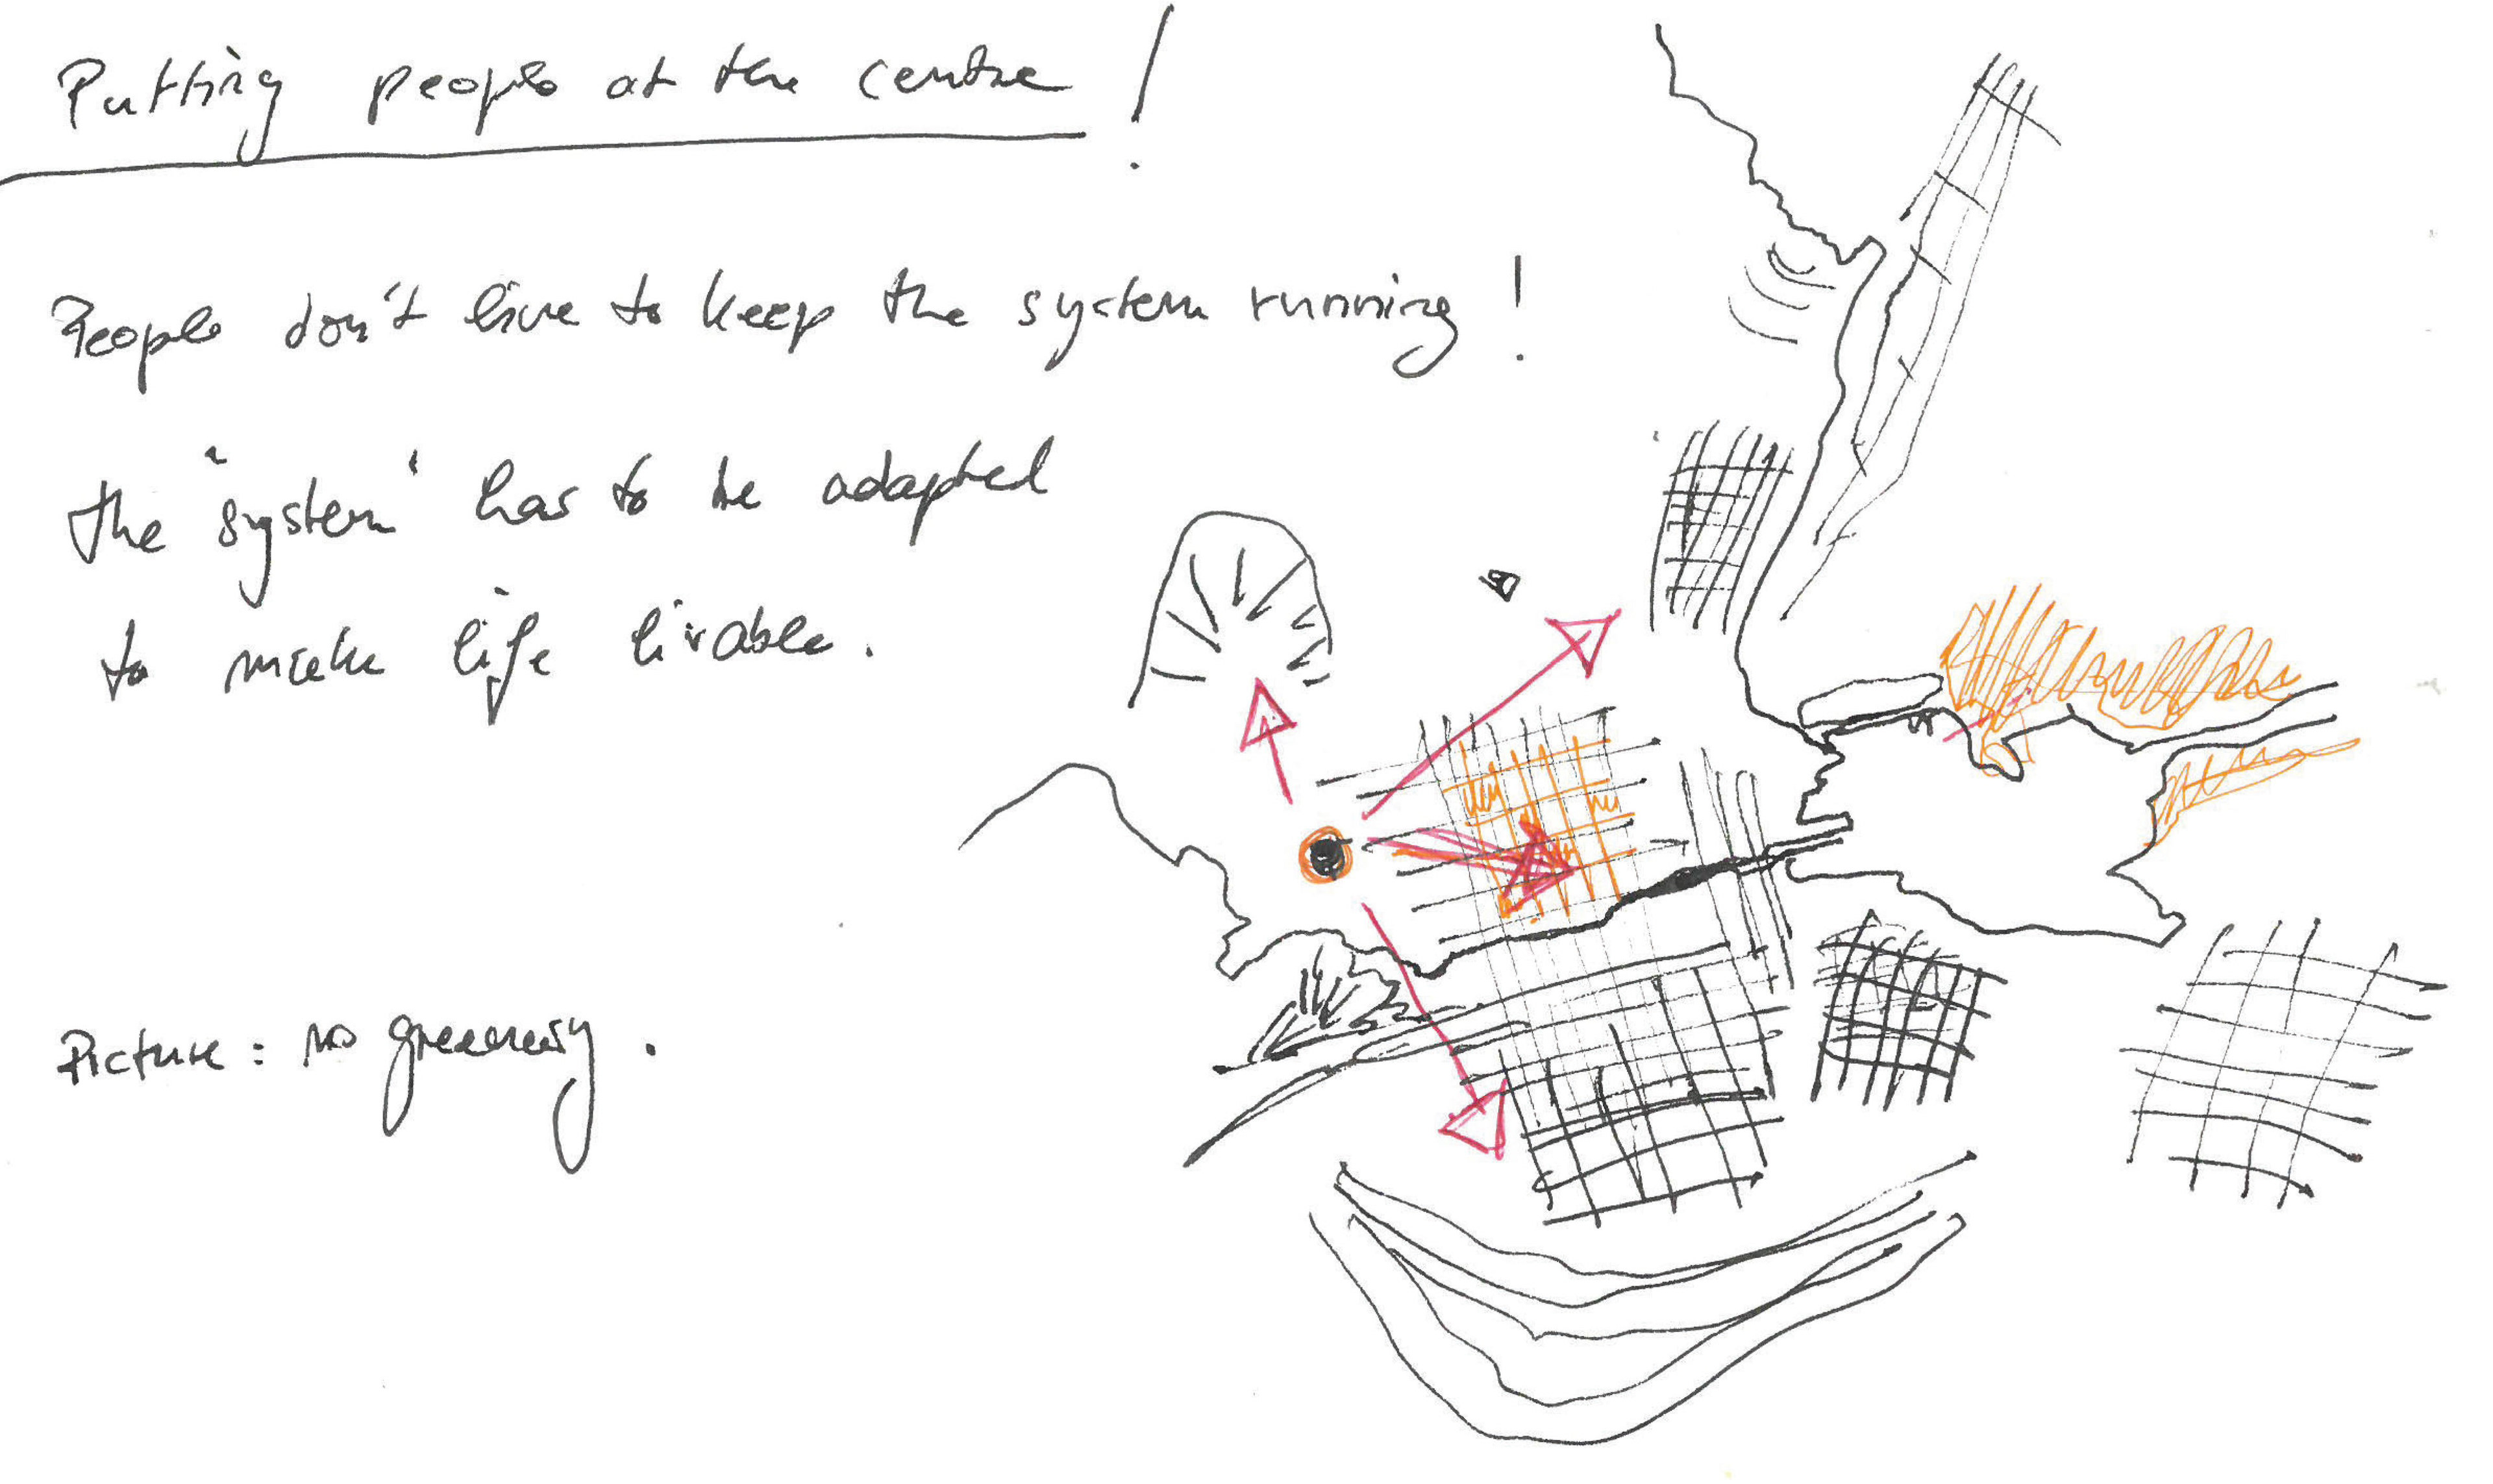 Putting people at the centre!
People don't live to keep the system running!
the "system" has to be adapted
to make life livable.
Picture: no greenery.